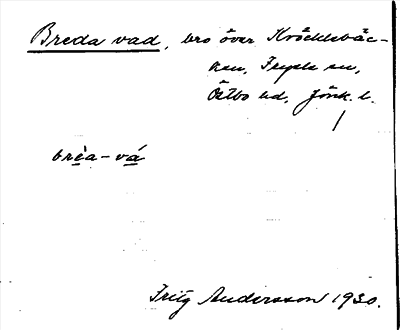 Breda vad, bro över Kröcklebäc-
ken, Fryele sn,
Östbo hd, Jönk. l.
brèa-vá
Fritz Andersson 1930.